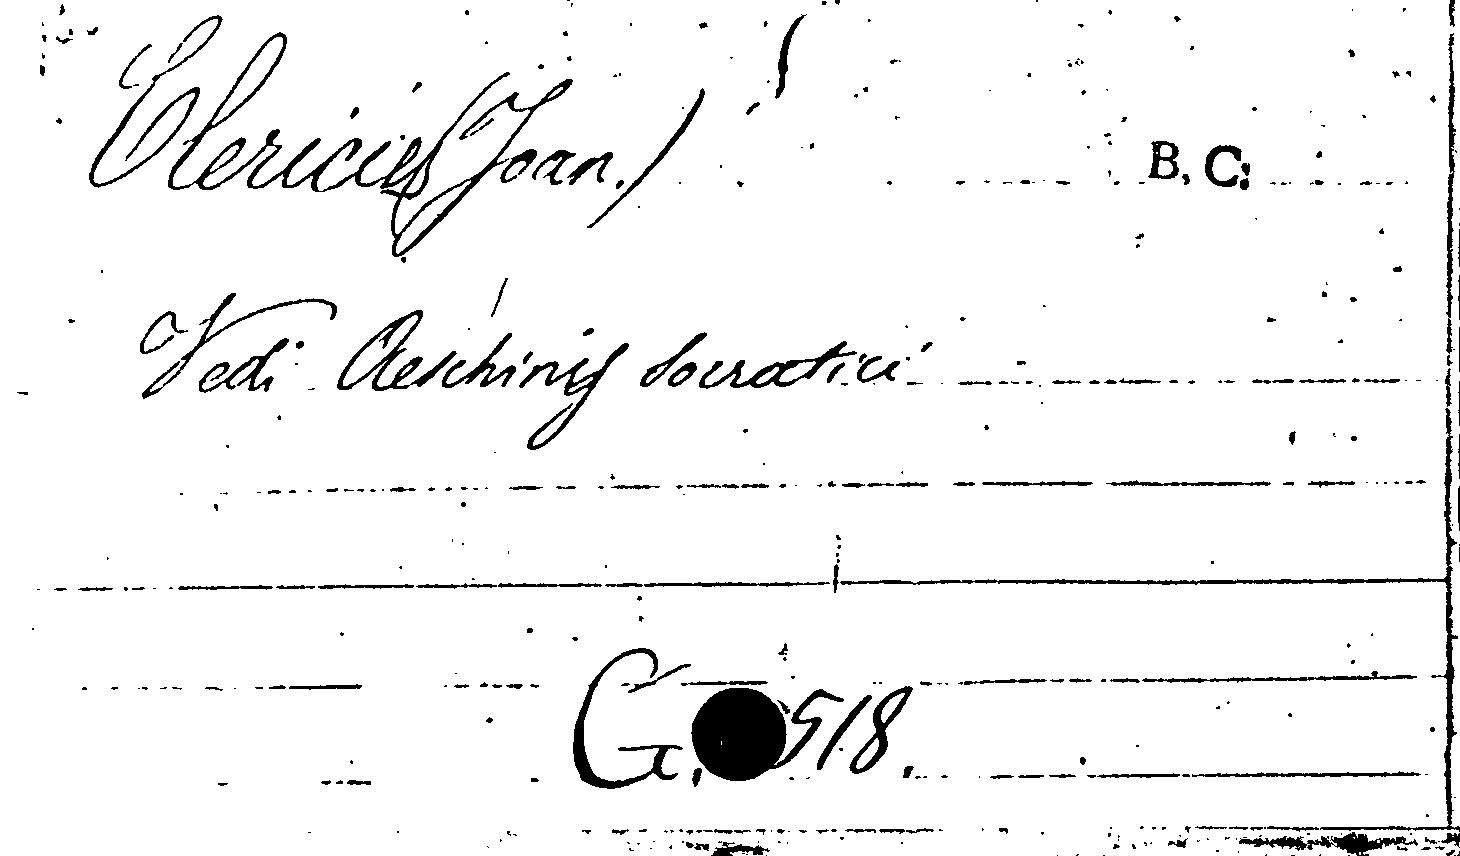 Clericus (Joan.)
B. C.
Vedi Aeschinis Socratici
G. 518.